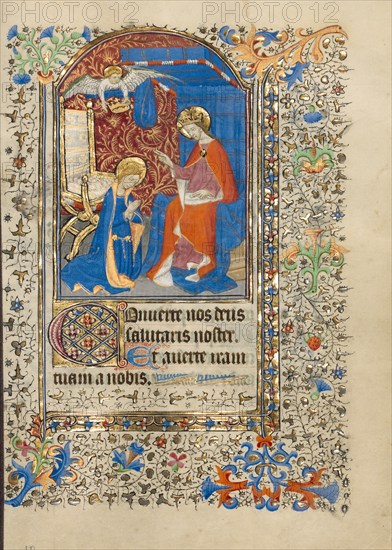 Onuerte nos deus
salutaris noster.
Et auerte iram
tuam a nobis.